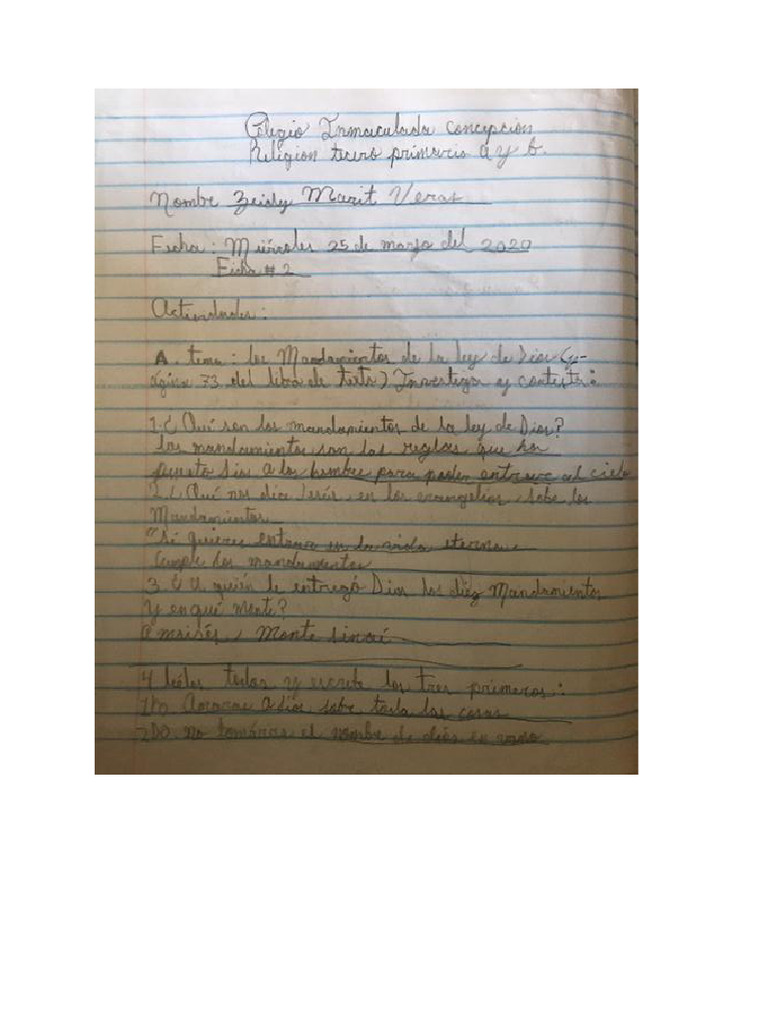 Colegio Inmaculada Concepción
Religion tercero primario a y b.
Nombre Zeidy Marit Veras
Fecha: Miércoles 25 de marzo del 2020
Ficha # 2
Actividades:
A. tema: los Mandamientos de la ley de Dios (p-
ágina 73 del libro de texto) Investigar y contesta:
1.¿Qué son los mandamientos de la ley de Dios?
los mandamientos son las reglas que ha
puesto Dios a los hombre para poder entrar al cielo
2.¿Qué nos dice Jesús en los evangelios sobe los
Mandamientos
"Si quieres entrar en la vida eterna
cumple los mandamientos
3. ¿A quién le entregó Dios los diez Mandamientos
y en qué monte?
a moisés, Monte Sinaí
4 leélos todos y escribe los tres primeros:
1ro Amaras a dios sobre toda las cosas
2DO no tomáras el nombre de diós en vano